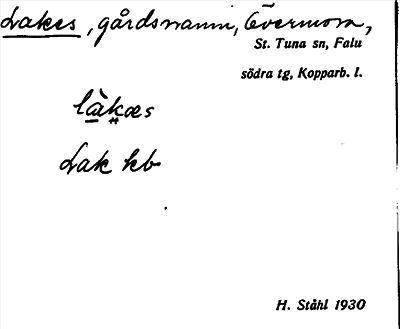 Lakes, gårdsnamn, Övermora,
St. Tuna sn, Falu
södra tg, Kopparb. l.
làkæs
Lak kb
H. Ståhl 1930